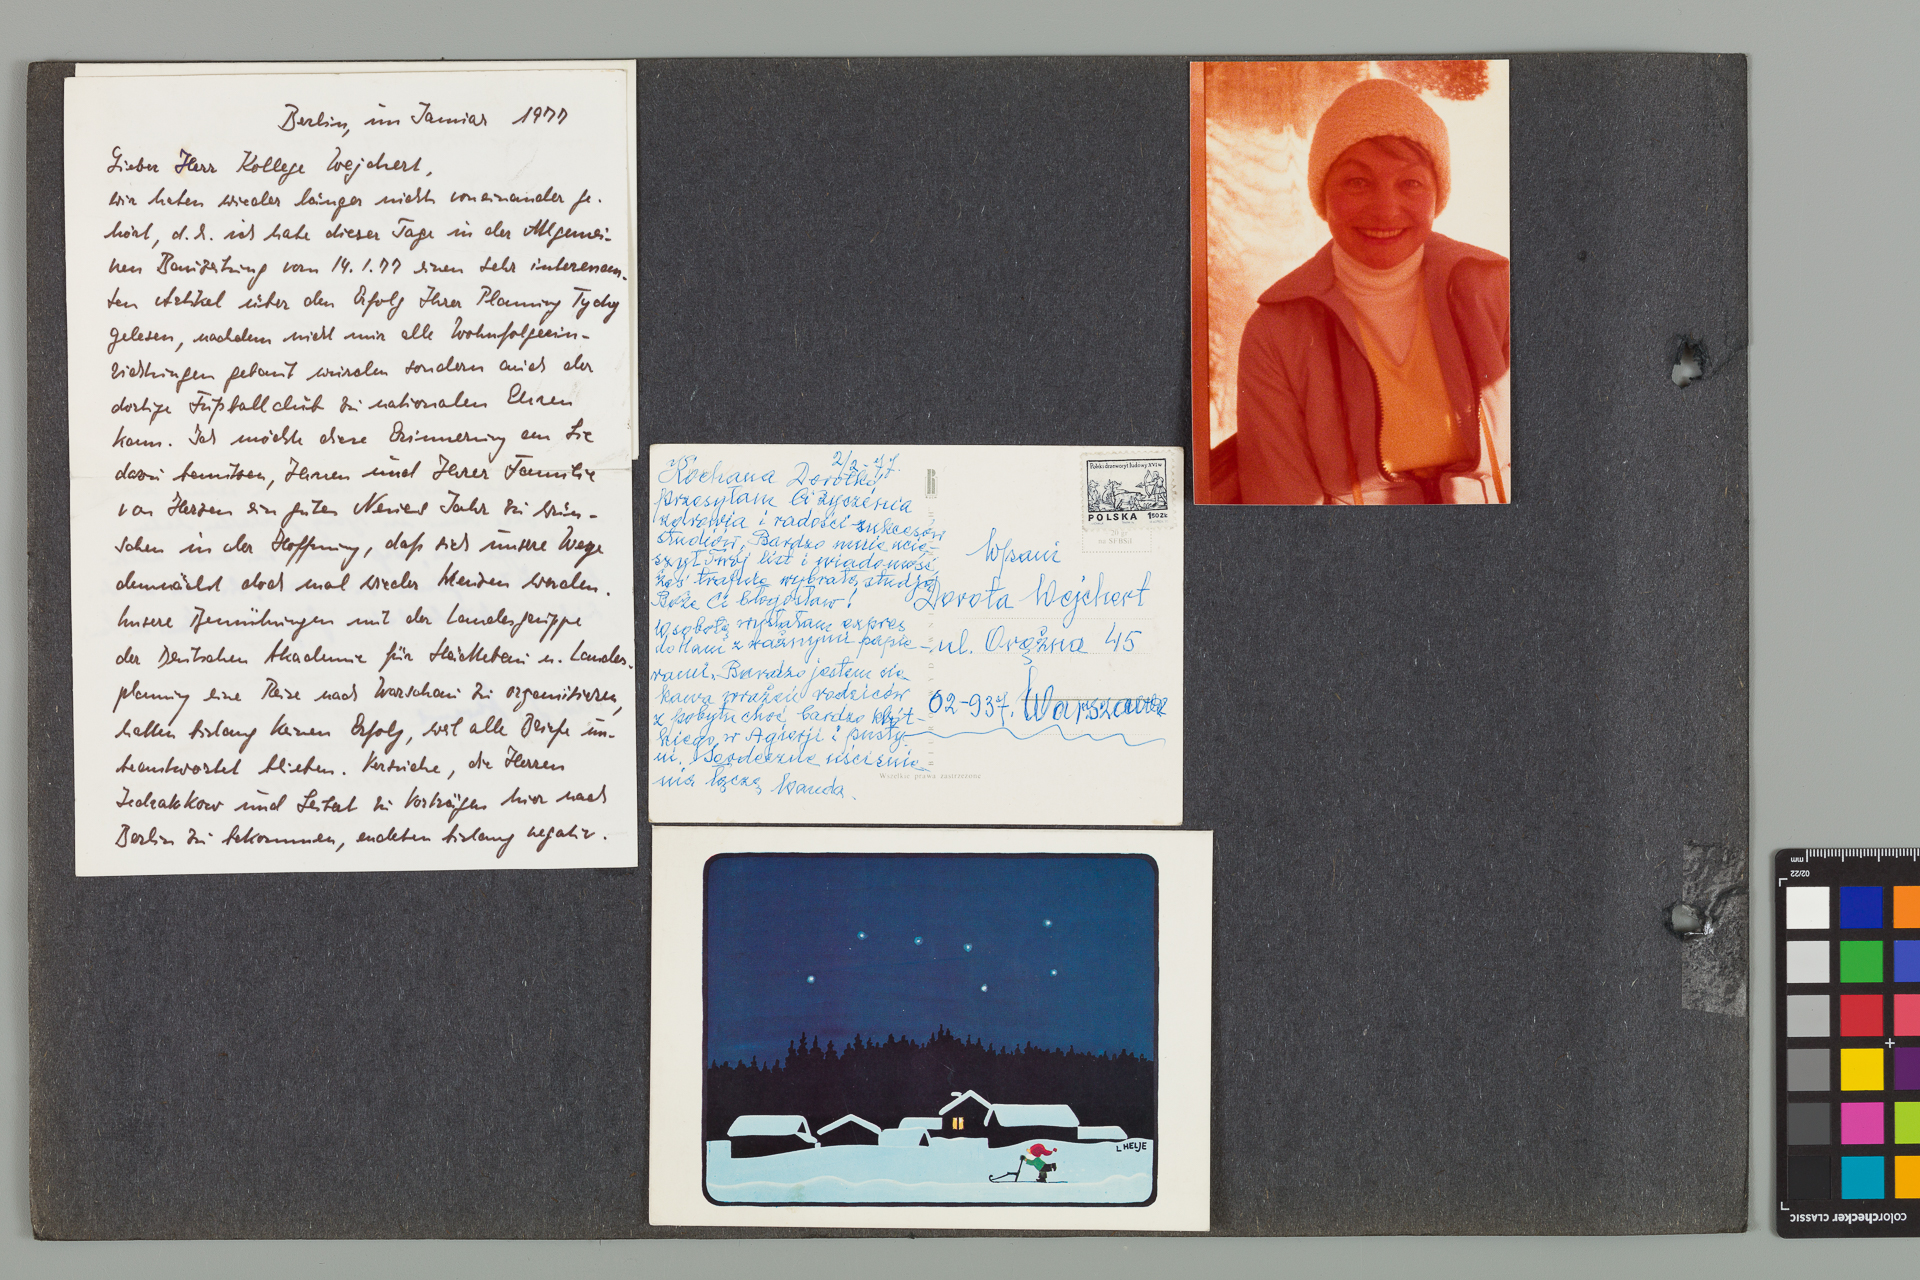 Berlin, im Januar 1977
Lieber Herr Kollege Wejchert,
wir haben wieder länger nichts voneinander ge-
hört, d.h. ich habe dieser Tage in der Allgemei-
nen Bauzeitung vom 14.1.77 einen sehr interessan-
ten Artikel über den Erfolg Ihrer Planung Tychy
gelesen, nachdem nicht nur alle Wohnfolgeein-
richtungen gebaut wurden sondern auch der
dortige Fußballclub zu nationalen Ehren
kam. Ich möchte diese Erinnerung an Sie
dazu benutzen, Ihnen und Ihrer Familie
von Herzen ein gutes Neues Jahr zu wün-
schen in der Hoffnung, daß sich unsere Wege
demnächst doch mal wieder kreuzen werden.
Unsere Bemühungen mit der Landesgruppe
der Deutschen Akademie für Städtebau u. Landes-
planung eine Reise nach Warschau zu organisieren,
hatten bislang keinen Erfolg, weil alle Briefe un-
beantwortet blieben. Versuche, die Herren
und zu Vorträgen hier nach
Berlin zu bekommen, endeten bislang negativ.
2/2-77.
Kochana Dorotko,
przesyłam Ci życzenia
zdrowia i radości sukcesów
studiów. Bardzo mnie ucie-
szył Twój list i wiadomość,
żeś trafnie wybrała studia
Boże Ci błogosław!
W sobotę wysłałam expres
do Mani z ważnymi papie-
rami. Bardzo jestem cie-
kawa wrażeń rodziców
z pobytu choć bardzo krót-
kiego w Algierji i pusty-
ni. Serdeczne uściśnie-
nia łączę Wanda.
Polski drzeworyt ludowy XVI w
POLSKA 1 50 ZŁ
WPani
Dorota Wejchert
ul. Orężna 45
02-937. Warszawa
Wszelkie prawa zastrzeżone
L HELJE
mm
02/22
colorchecker CLASSIC